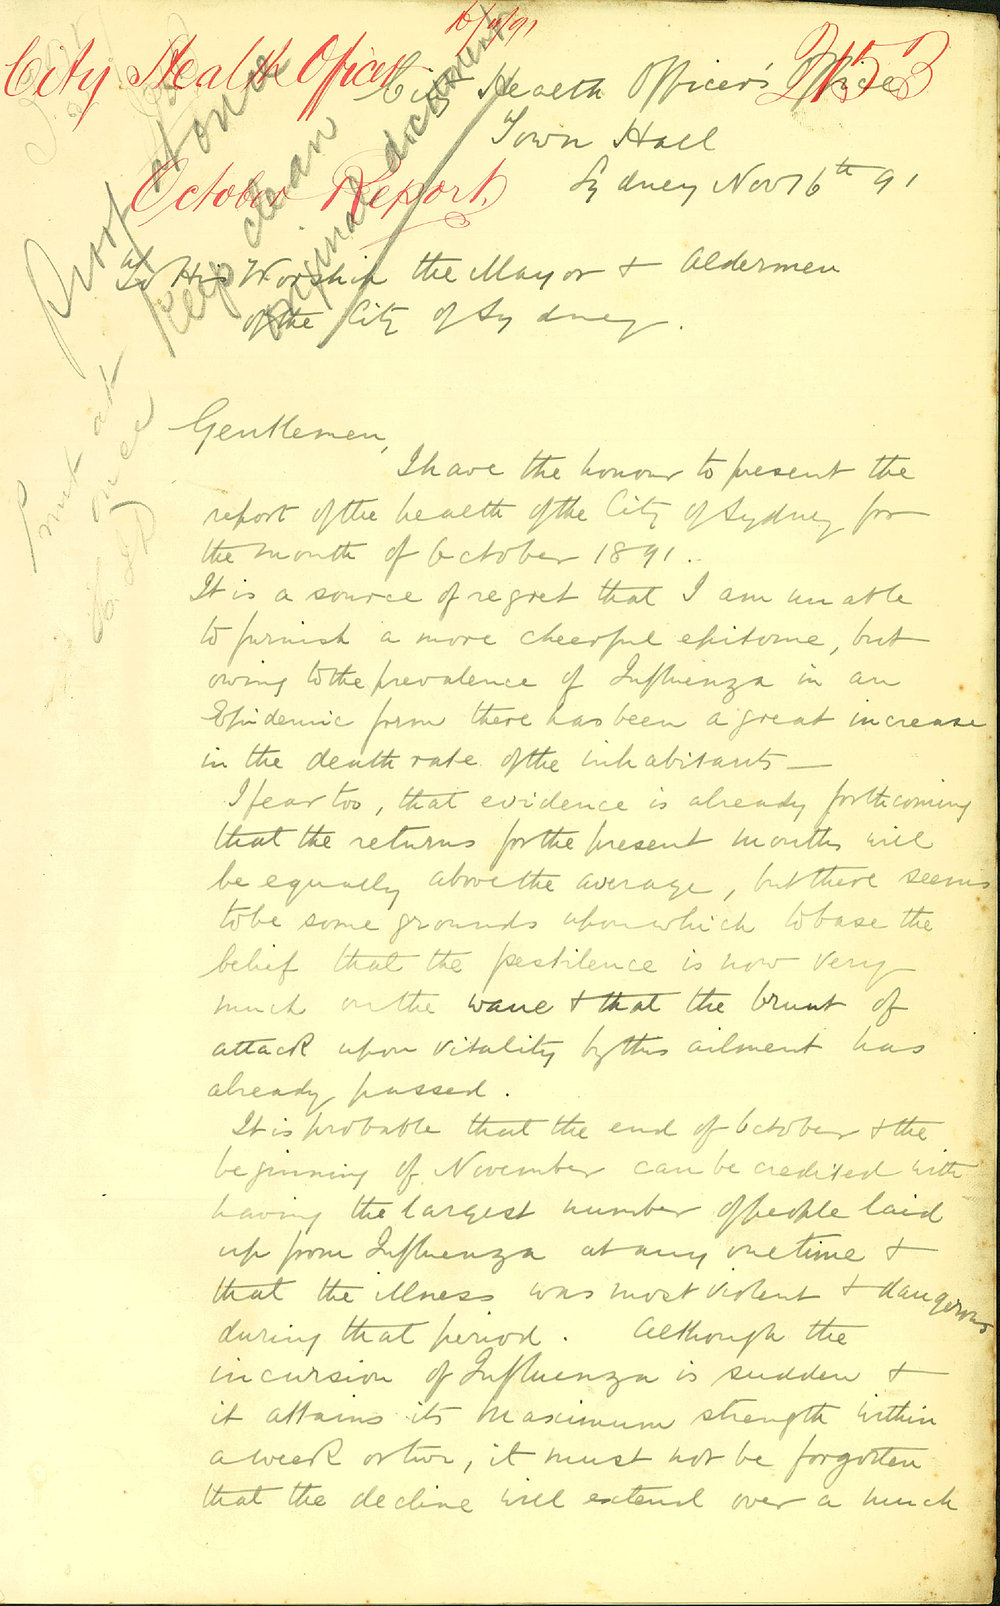 16/11/91
City Health Officer 2153
October Report,
Proof at once
Keep clean
original document
Print at
once
City Health Officer's Office
Town Hall
Sydney Nov 16th 91
To His Worship the Mayor & Aldermen
of the City of Sydney.
Gentlemen,
I have the honour to present the
report of the health of the City of Sydney for
the month of October 1891..
It is a source of regret that I am unable
to furnish a more cheerful epitome, but
owing to the prevalence of Influenza in an
Epidemic form there has been a great increase
in the death rate of the inhabitants —
I fear too, that evidence is already forthcoming
that the returns for the present months will
be equally above the average, but there seems
to be some grounds upon which to base the
belief that the pestilence is now very
much on the wane & that the brunt of
attack upon vitality by this ailment has
already passed.
It is probable that the end of October & the
beginning of November can be credited with
having the largest number of people laid
up from Influenza at any one time &
that the illness was most violent & dangerous
during that period. Although the
incursion of Influenza is sudden &
it attains its maximum strength within
a week or two, it must not be forgotten
that the decline will extend over a much